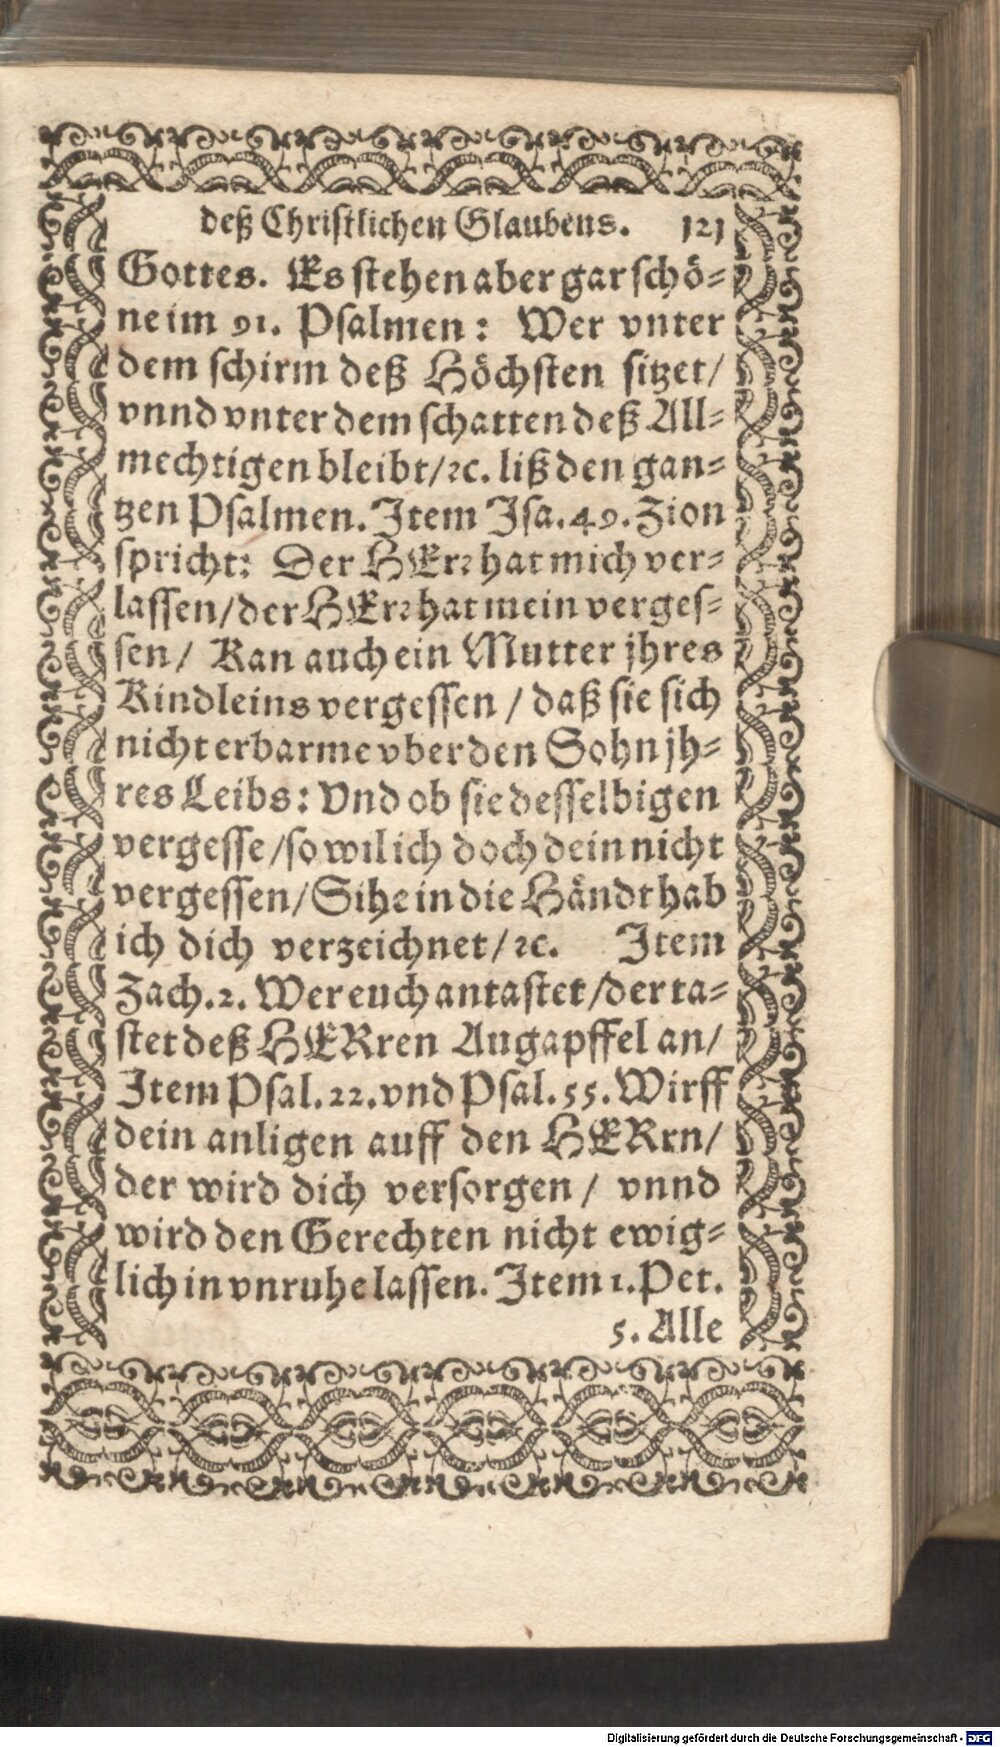 deß Christlichen Glaubens. 121
Gottes. Es stehen aber gar schö-
ne im 91. Psalmen: Wer vnter
dem schirm deß Höchsten sitzet/
vnnd vnter dem schatten deß All-
mechtigen bleibt/ ꝛc. liß den gan-
tzen Psalmen. Item Isa. 49. Zion
spricht: Der HErꝛ hat mich ver-
lassen/ der HErꝛ hat mein verges-
sen/ Kan auch ein Mutter jhres
Kindleins vergessen / daß sie sich
nicht erbarme vber den Sohn jh-
res Leibs: Vnd ob sie desselbigen
vergesse/ so wil ich doch dein nicht
vergessen/ Sihe in die Händt hab
ich dich verzeichnet/ ꝛc. Item
Zach. 2. Wer euch antastet/ der ta-
stet deß HERren Augapffel an/
Item Psal. 22. vnd Psal. 55. Wirff
dein anligen auff den HERrn/
der wird dich versorgen / vnnd
wird den Gerechten nicht ewig-
lich in vnruhe lassen. Item 1. Pet.
5. Alle
Digitalisierung gefördert durch die Deutsche Forschungsgemeinschaft - DFG